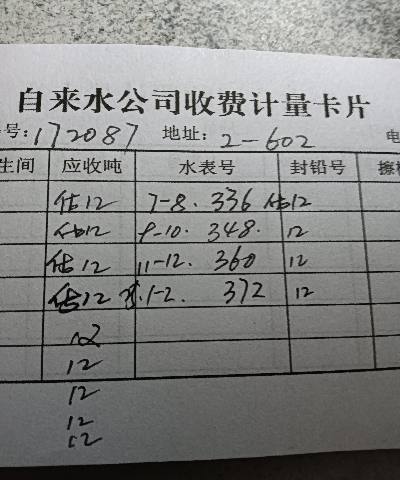 自来水公司收费计量卡片
号: 172087 地址: 2-602 电
生间 应收吨 水表号 封铅号 擦
估12 7-8. 336 估12
估12 9-10. 348. 12
估12 11-12. 360 12
估12 1-2. 372 12
12
12
12
12
12